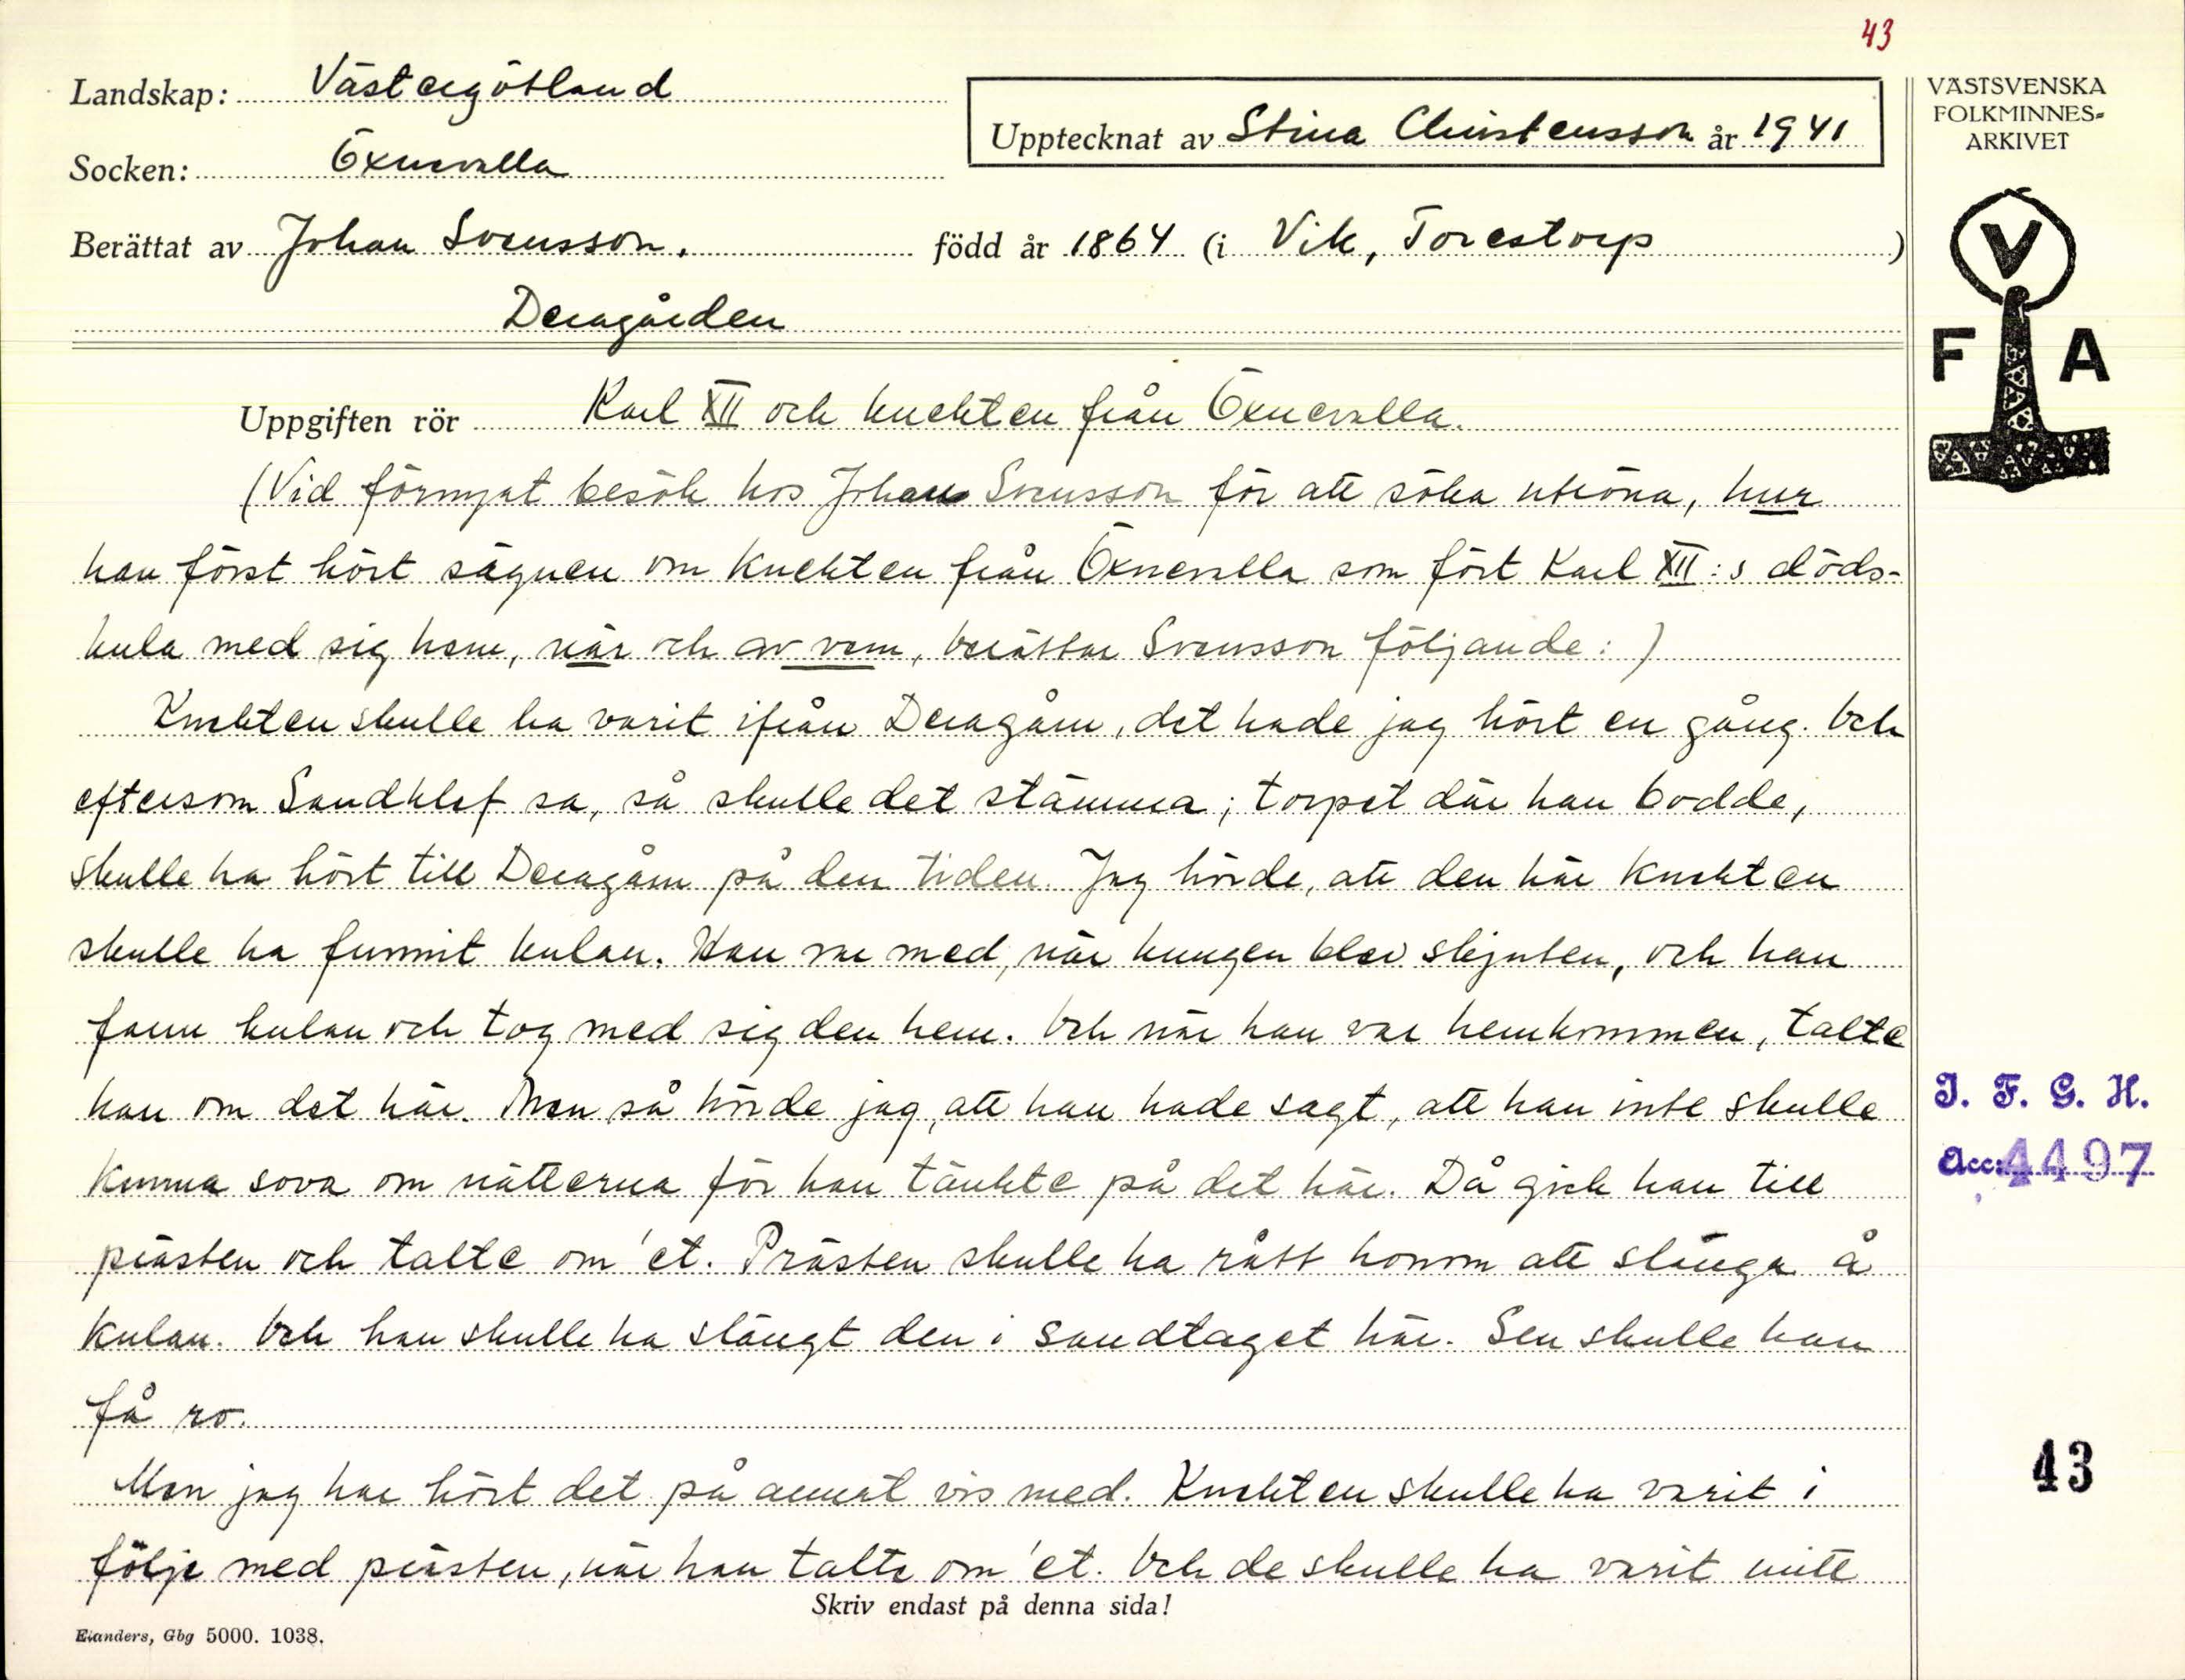 43
Landskap: Västergötland
Socken: Öxnevalla
Upptecknat av Stina Christensson år 1941
Berättat av Johan Svensson, född år 1864 (i Vik, Torestorp)
Deragården
VÄSTSVENSKA
FOLKMINNES-
ARKIVET
V
F A
Uppgiften rör Karl XII och knekten från Öxnevalla.
(Vid förnyat besök hos Johan Svensson för att söka utröna, hur
han först hört sägnen om knekten från Öxnevalla som fört Karl XII:s döds-
kula med sig hem, när och av vem, berättar Svensson följande:)
Knekten skulle ha varit ifrån Deragårn, det hade jag hört en gång. Och
eftersom Sandklef sa, så skulle det stämma; torpet där han bodde,
skulle ha hört till Deragårn på den tiden. Jag hörde, att den här knekten
skulle ha funnit kulan. Han var med, när kungen blev skjuten, och han
fann kulan och tog med sig den hem. Och när han var hemkommen, talte
han om det här. Men så hörde jag, att han hade sagt, att han inte skulle
kunna sova om nätterna för han tänkte på det här. Då gick han till
prästen och talte om 'et. Prästen skulle ha rått honom att slänga å
kulan. Och han skulle ha slängt den i sandtaget här. Sen skulle han
få ro.
Men jag har hört det på annat vis med. Knekten skulle ha varit i
följe med prästen, när han talte om 'et. Och de skulle ha varit mitt
Skriv endast på denna sida!
Elanders, Gbg 5000. 1038.
I. F. G. H.
Acc: 4497
43